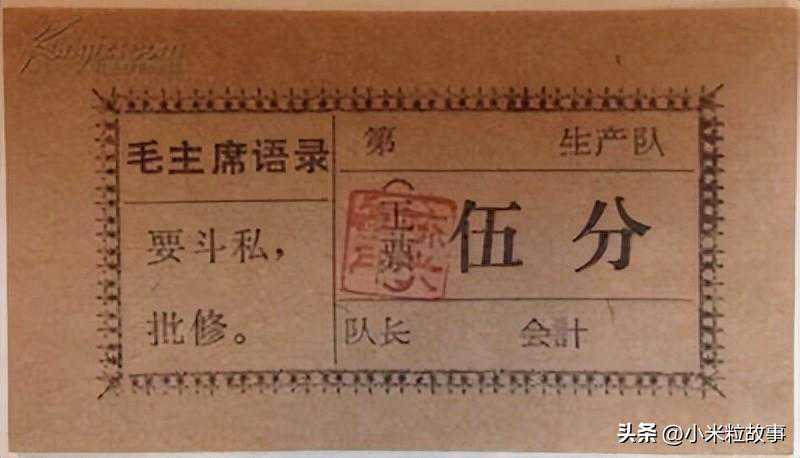 毛主席语录
要斗私，
批修。
第 生产队
伍分
队长 会計
头条 @小米粒故事